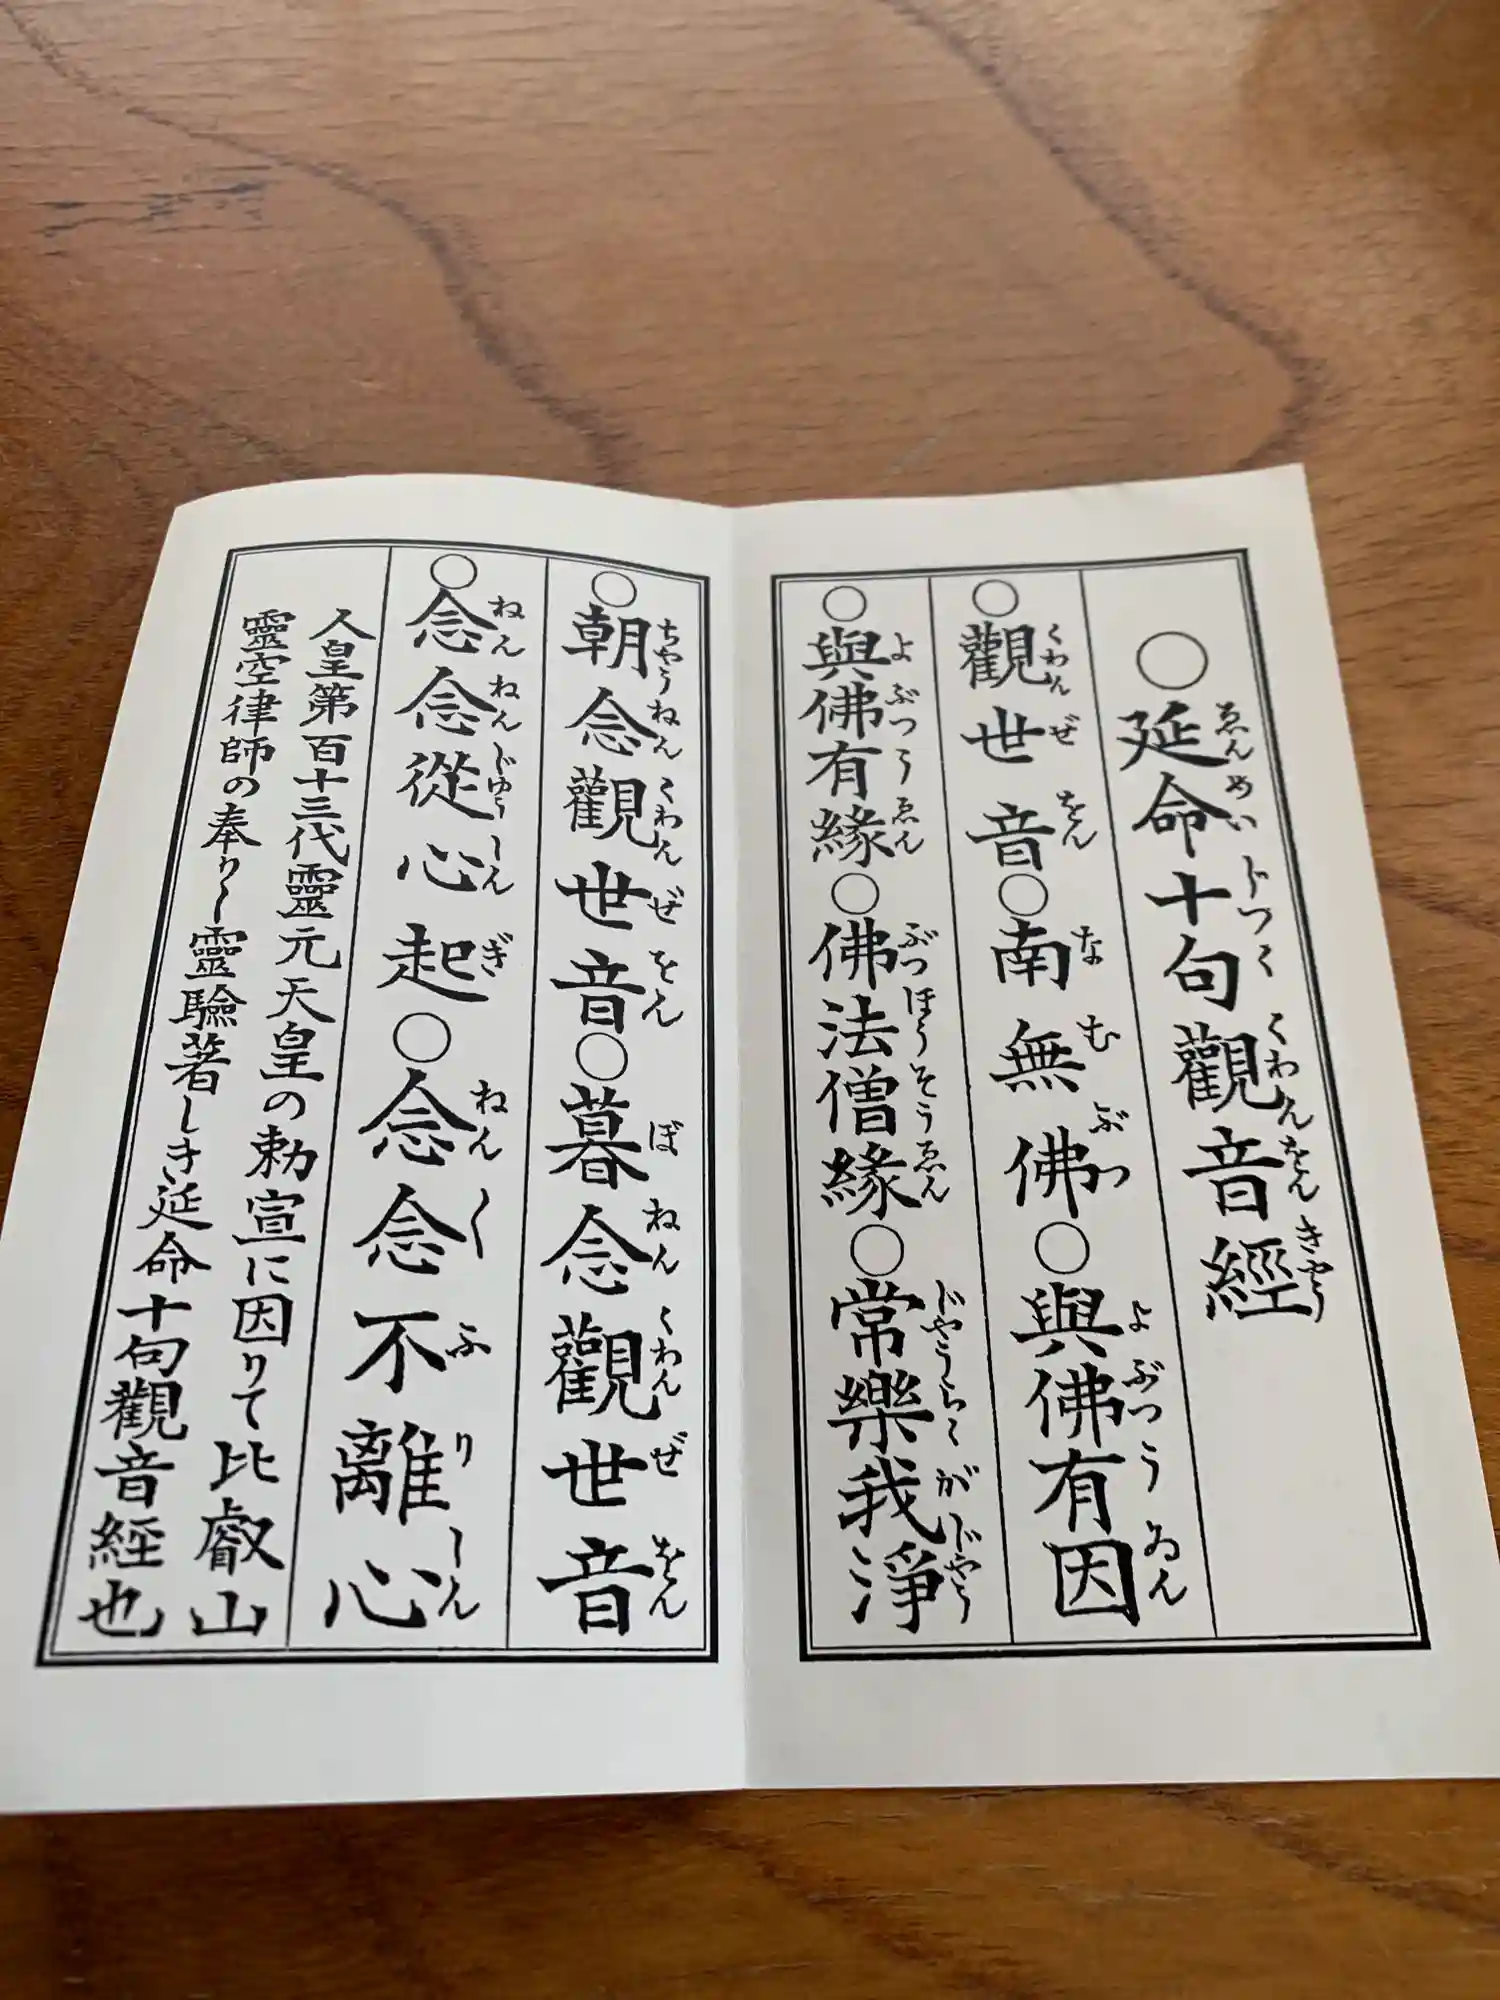 ○延命十句觀音經
ゑんめいじつくくわんをんきやう
○觀世音○南無佛○與佛有因
くわんぜをんなむぶつよぶつうゐん
○與佛有緣○佛法僧緣○常樂我淨
よぶつうゑんぶつほうそうゑんじやうらくがじやう
○朝念觀世音○暮念觀世音
ちやうねんくわんぜをんぼねんくわんぜをん
○念念從心起○念念不離心
ねんねんじゆうしんぎねん〱ふりしん
人皇第百十三代靈元天皇の勅宣に因りて比叡山
靈空律師の奉りし靈驗著しき延命十句觀音經也